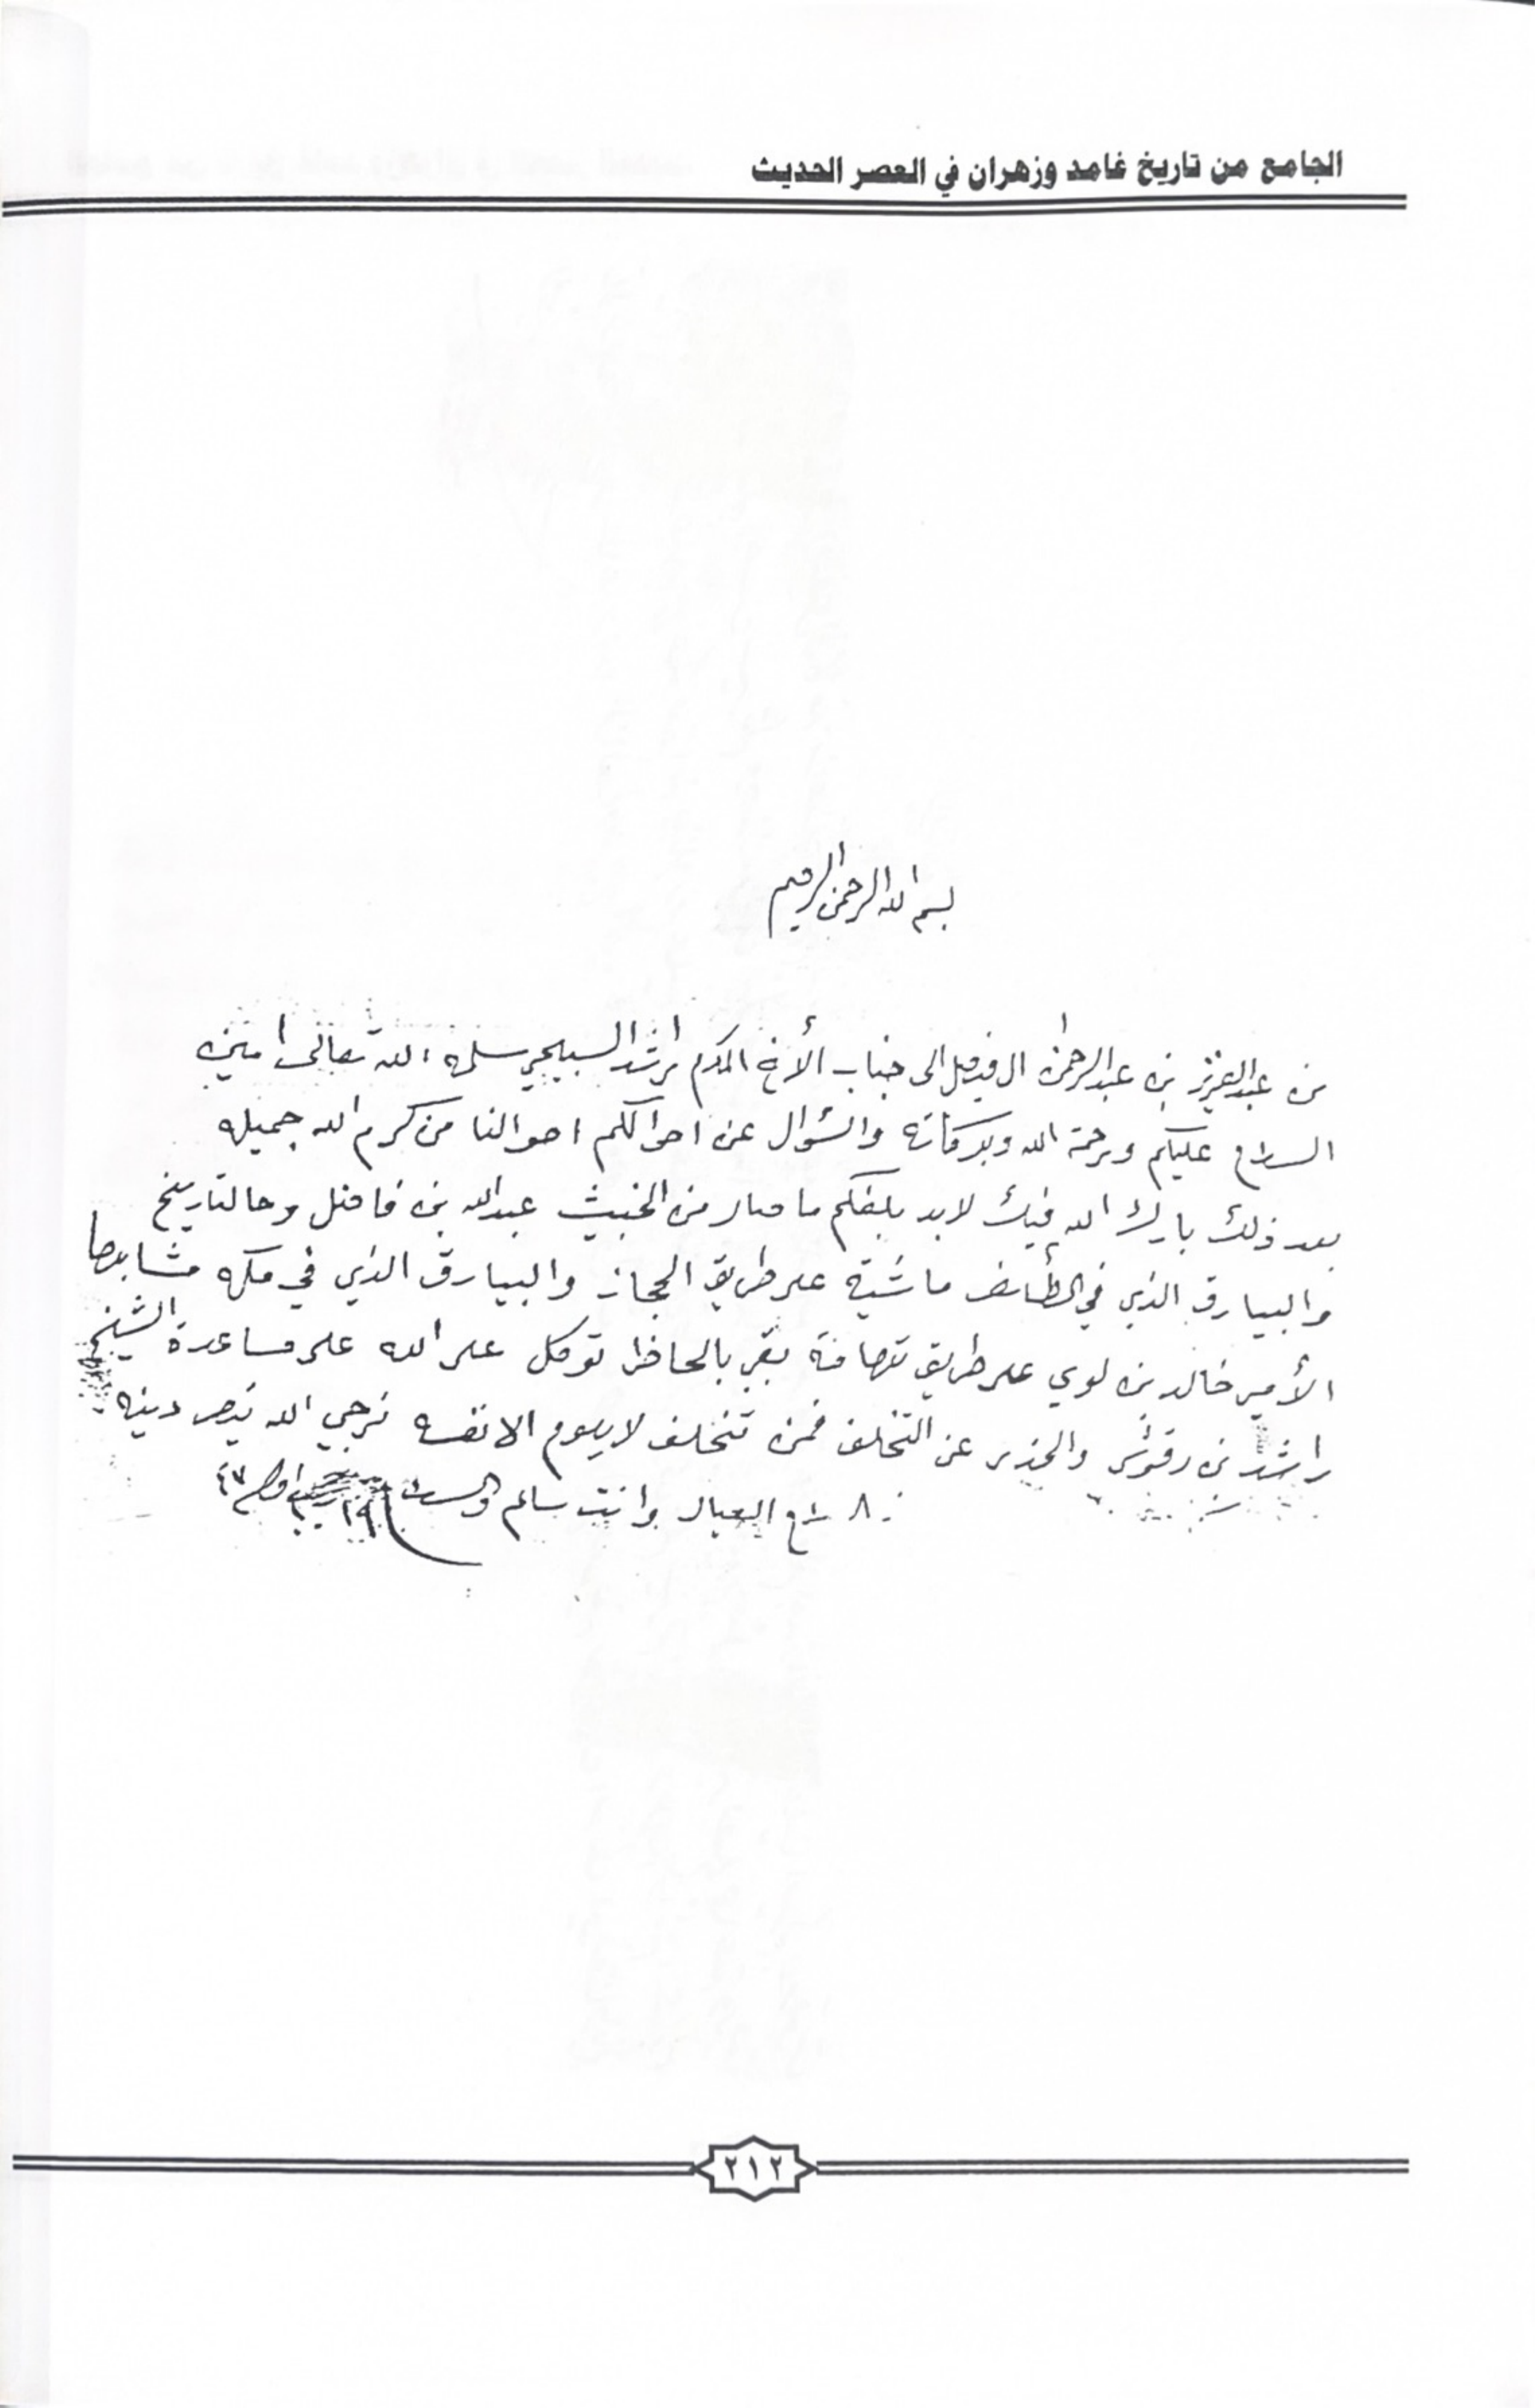 الجامع من تاريخ غامد وزهران في العصر الحديث
بسم الله الرحمن الرحيم
من عبدالعزيز بن عبدالرحمن ال فيصل الى جناب الأخ المكرم راشد السبيحي سلمه الله تعالى امين
السلام عليكم ورحمة الله وبركاته والسؤال عن احوالكم احوالنا من كرم الله جميله
بعد ذلك بارك الله فيك لابد بلغكم ما صار من الخبيث عبدالله بن فاضل وحالتاريخ
والبيارق الذي في الطائف ماشية على طريق الحجاز والبيارق الذي في مكه مشا
الأمير خالد بن لوي على طريق تهامة بقى بالحاظر توكل على الله على مساعدة الشيخ
راشد بن رقوش والحذر عن التخلف فمن تخلف لا يلوم الا نفسه نرجي الله ينصر دينه
العيال وانت سالم والسلام
٢١٢